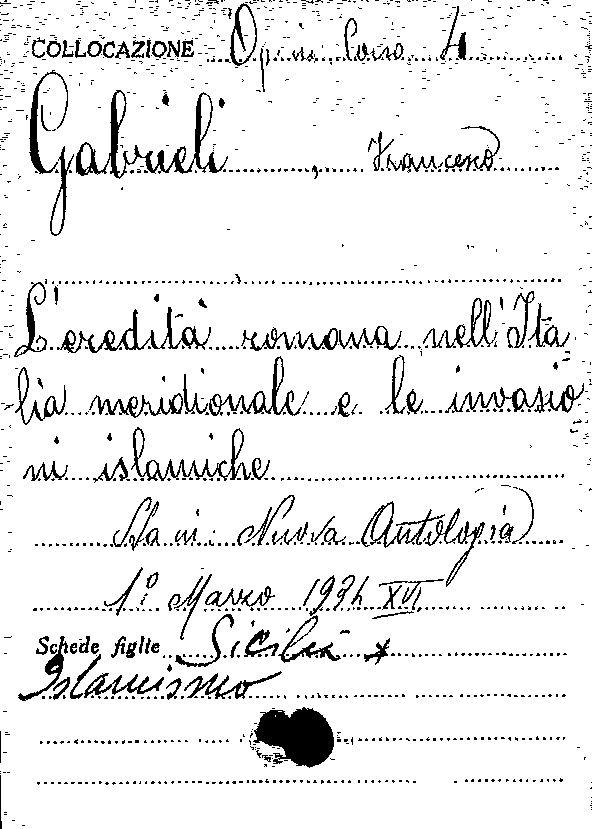 COLLOCAZIONE Op. in Corso 4
Gabrieli, Francesco
L'eredità romana nell'Ita
lia meridionale e le invasio
ni islamiche
Sta in: Nuova Antologia
1º Marzo XVI
Schede figlie Sicilia *
Islamismo